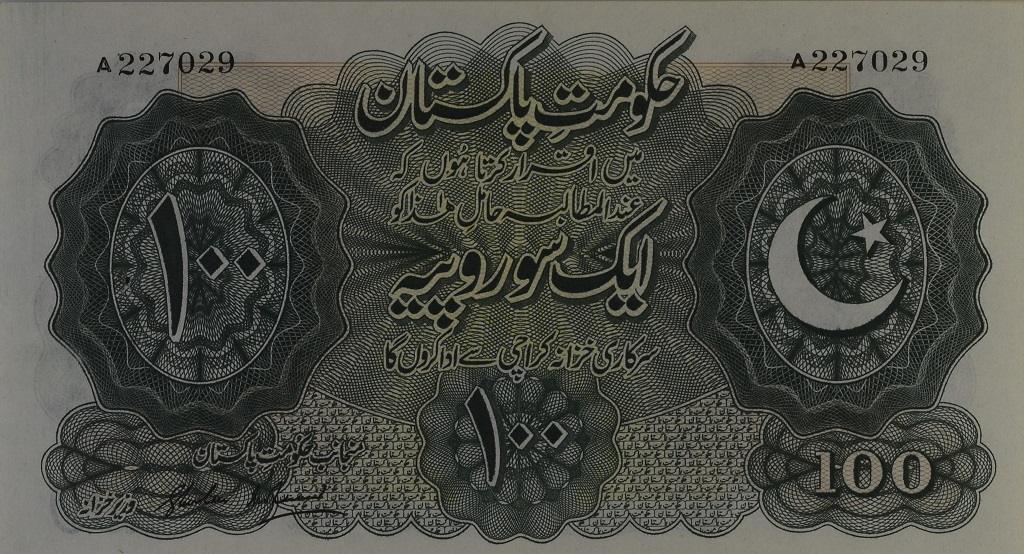 A 227029
A 227029
حکومتِ پاکستان
میں اقرار کرتا ہوں کہ
عندالمطالبہ حامل ھذا کو
ایک سو روپیہ
سرکاری خزانہ کراچی سے ادا کروں گا
۱۰۰
۱۰۰
منجانب حکومت پاکستان
وزیر خزانہ
100